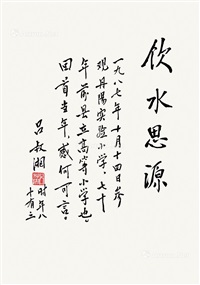 饮水思源
一九八七年十月十四日参
观丹阳实验小学，七十
年前县立高等小学也，
回首当年，感何可言。
吕叔湘
时年八
十有三